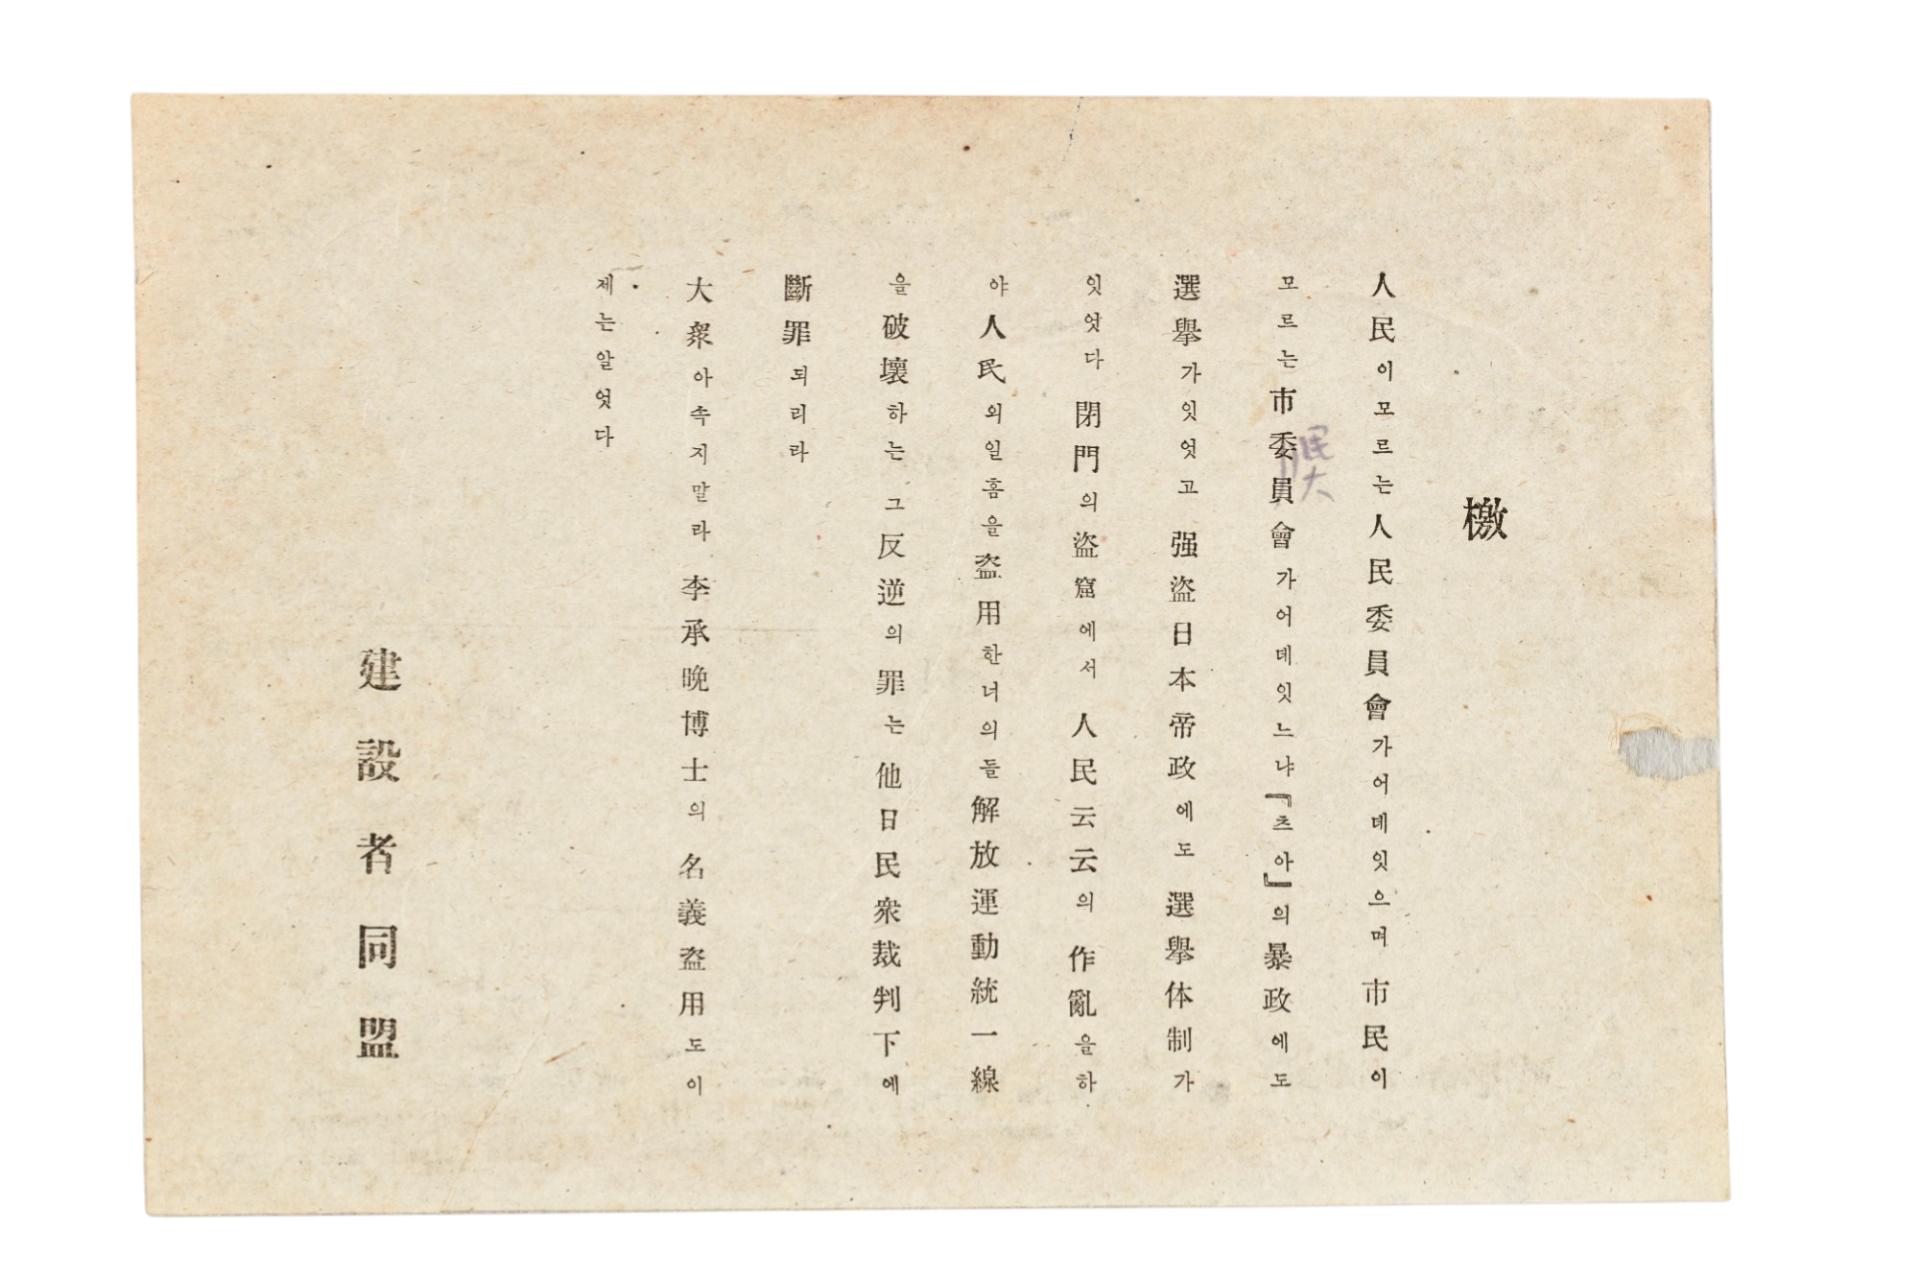 檄
人民이모르는人民委員會가어데잇으며 市民이
모르는市委員會가어데잇느냐『츠아』의暴政에도
選擧가잇엇고 强盜日本帝政에도 選擧体制가
잇앗다 閉門의盜窟에서 人民云云의 作亂을하
야人民의일홈을盜用한너의들解放運動統一線
을破壞하는 그反逆의罪는 他日民衆裁判下에
斷罪되리라
大衆아속지말라 李承晩博士의 名義盜用도이
제는알엇다
建設者同盟
民大